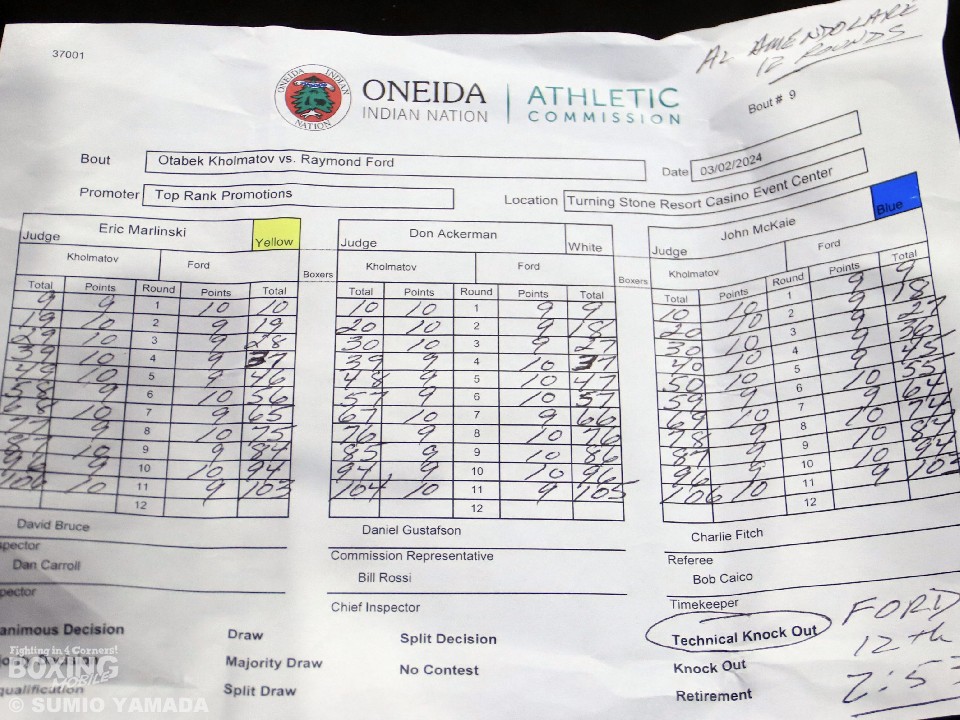 37001
AL AMENDOLARE
12 ROUNDS
ONEIDA INDIAN NATION
ONEIDA INDIAN NATION | ATHLETIC COMMISSION
Bout # 9
Bout Otabek Kholmatov vs. Raymond Ford Date 03/02/2024
Promoter Top Rank Promotions Location Turning Stone Resort Casino Event Center
Judge Eric Marlinski Yellow Judge Don Ackerman White Judge John McKaie Blue
Kholmatov Ford Boxers Kholmatov Ford Boxers Kholmatov Ford
Total Points Round Points Total Total Points Round Points Total Total Points Round Points Total
9 9 1 10 10 10 10 1 9 9 10 10 1 9 9
19 10 2 9 19 20 10 2 9 18 20 10 2 9 18
29 10 3 9 28 30 10 3 9 27 30 10 3 9 27
39 10 4 9 37 39 9 4 10 37 40 10 4 9 36
49 10 5 9 46 48 9 5 10 47 50 10 5 9 45
58 9 6 10 56 57 9 6 10 57 59 9 6 10 55
68 10 7 9 65 67 10 7 9 66 69 10 7 9 64
77 9 8 10 75 76 9 8 10 76 78 9 8 10 74
87 10 9 9 84 85 9 9 10 86 87 9 9 10 84
96 9 10 10 94 94 9 10 10 96 96 9 10 10 94
106 10 11 9 103 104 10 11 9 105 106 10 11 9 103
12 12 12
David Bruce Daniel Gustafson Charlie Fitch
spector Commission Representative Referee
Dan Carroll Bill Rossi Bob Caico
pector Chief Inspector Timekeeper
animous Decision Draw Split Decision Technical Knock Out FORD
Majority Draw No Contest Knock Out 12th
qualification Split Draw Retirement 2:53
Fighting in 4 Corners!
BOXING
MOBILE
© SUMIO YAMADA